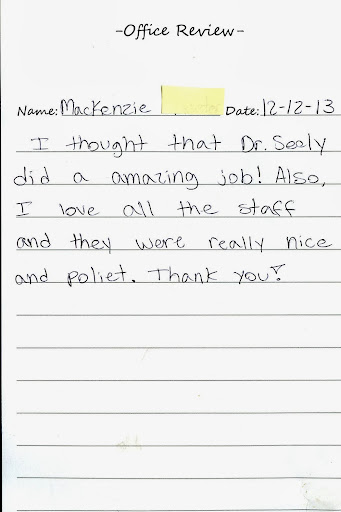 -Office Review-
Name: Mackenzie Date: 12-12-13
I thought that Dr. Seely
did a amazing job! Also,
I love all the staff
and they were really nice
and poliet. Thank you!